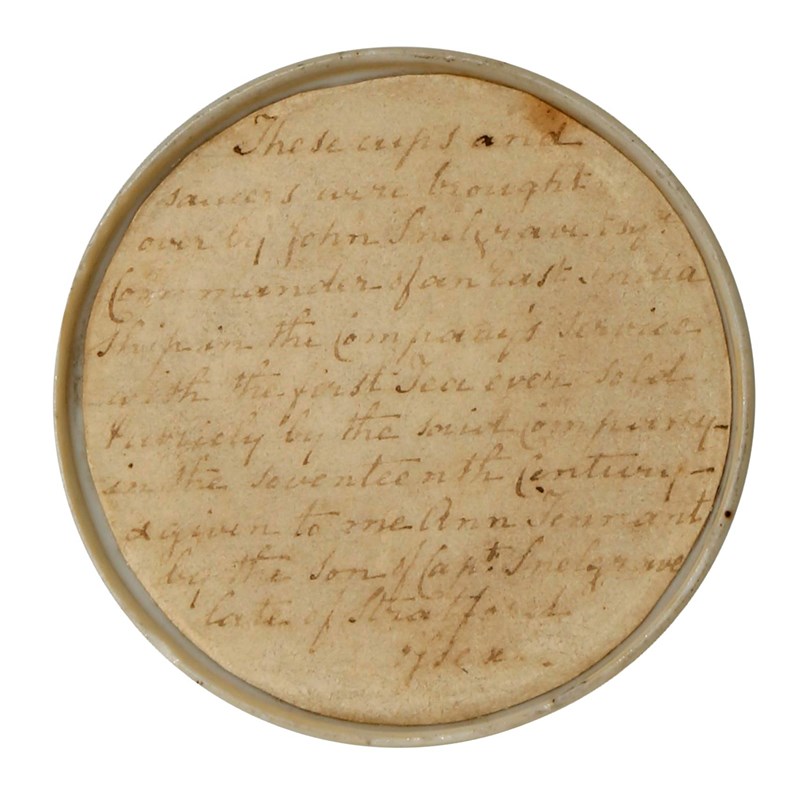 These cups and
saucers were brought
over by John Snelgrave Esqr.
Commander of an East India
Ship in the Company's Service
with the first Tea ever sold
Publicly by the said Company
in the seventeenth Century
& given to me Ann Tennant
by the Son of Capt. Snelgrave
late of Stratford
Essex.